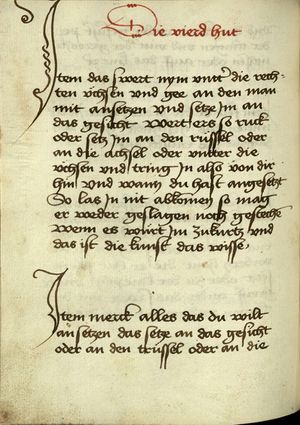 Die vierd hut
Item das swert nym vnter die rech-
ten vchsen vnd gee an den man
mit ansetzen vnd setz im an
das gesicht wert ers so ruck
oder setz im an den rüssel oder
an die achsel oder vnter die
vchsen vnd tring in also von dir
hin vnd wann du hast angesetzt
So las in nit abkomen so mag
er weder geslagen noch gestechē
wenn es wurt im zu kurtz vnd
das ist die kunst das wisse
Item merck alles das du wilt
an setzen das setze an das gesicht
oder an den trüssel oder an die